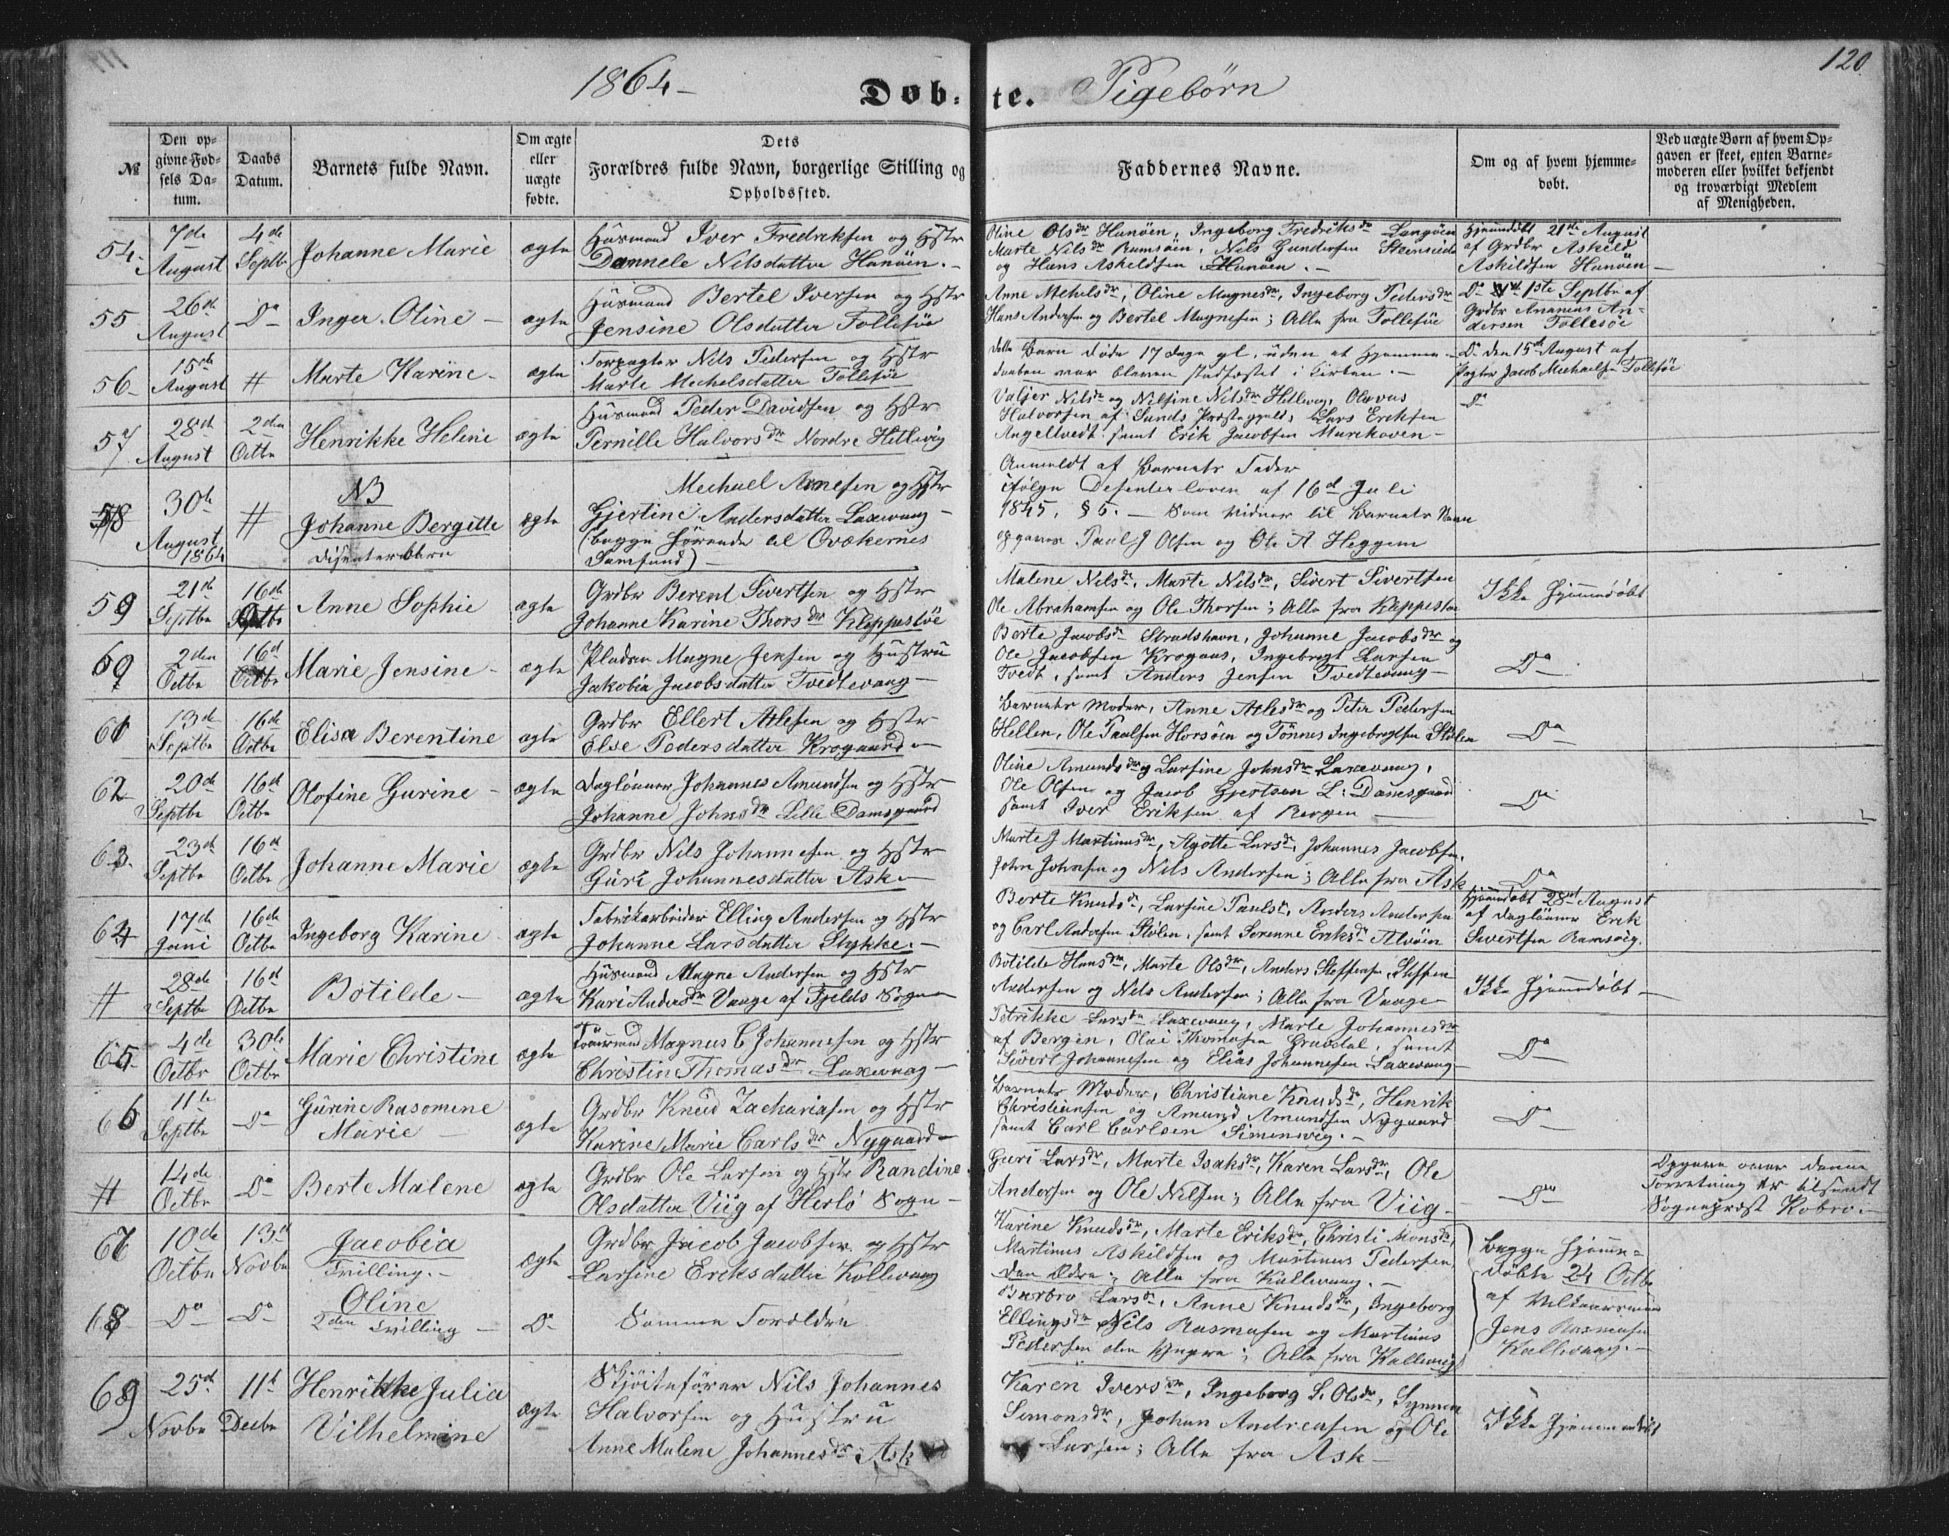 1864-
Døb-te. Pigebørn
120
№
Den opgivne Fødsels Datum.
Daabs Datum.
Barnets fulde Navn.
Om ægte eller uægte fødte.
Dets Forældres fulde Navn, borgerlige Stilling og Opholdssted.
Faddernes Navne.
Om og af hvem hjemmedøbt.
Ved uægte Børn af hvem Opgaven er skeet, enten Barnemoderen eller hvilket bekjendt og troværdigt Medlem af Menigheden.
54. 7de August 4de Septbr Johanne Marie ægte
Huusmand Iver Fredriksen og Hstr
Dannele Nilsdatter Hanöen.-
Oline Olsdr Hanöen, Ingeborg Fredriksdr Langöen
Marte Nilsdr Ramsöen, Nils Gundersen Steinseide
og Hans Askildsen Hanöen.-
Hjemdöbt 21de August
af Grdbr Askild
Askildsen Hanöen-
55 26de August Do Inger Oline- ægte
Huusmand Bertel Iversen og Hstr
Jensine Olsdatter Follesöe
Anne Mekelsdr, Oline Magnesdr, Ingeborg Pedersdr
Hans Andersen og Bertel Magnesen; Alle fra Follesöe
Do 1ste Septbr af
Grdbr Ananias Andersen Follesöe
56- 15de August # Marte Karine- ægte
Forpagter Nils Pedersen og Hstr
Marte Mechelsdatter Follesöe
dette Barn døde 17 dage gl. uden at Hjemme-
daaben var bleven stadfæstet i Kirken.-
Do den 15de August af
Pagter Jacob Michaelsen Follesöe
57 28de August 2den Octbr Henrikke Helene ægte
Huusmand Peder Davidsen og Hstr
Pernille Halvorsdr Nordre Hetlevig
Valjer Nilsdr og Nilsine Nilsdr Hetlevig, Olavus
Halvorsen af Sunds Præstegjæld, Lars Eriksen
Angeltvedt samt Erik Jacobsen Marikoven-
Do
58 30te August 1864 # NB
Johanne Bergitte
Disenterbarn ægte
Mechael Arnesen og Hstr
Gjertine Andersdatter Laxevaag-
(begge hørende til Qvækernes
Samfund)-
Anmeldt af Barnets Fader
ifølge Desenterloven af 16de Juli
1845, § 6.- Som vidner til Barnets Navn
opgaves Paul J Olsen og Ole A Heggem
59 21de Septbr 16de Octbr Anne Sophie ægte
Grdbr Berent Sivertsen og Hstr
Johanne Karine Thorsdr Kleppestöe
Malene Nilsdr, Marte Nilsdr, Sivert Sivertsen
Ole Abrahamsen og Ole Thorsen; Alle fra Kleppestöe
Ikke Hjemmedöbt
60 2den Octbr 16de Octbr Marie Jensine- ægte
Pladsm Magne Jensen og Hustru
Jakobia Jacobsdatter Tvedtevaag-
Berte Jacobsdr Strudshavn, Johanne Jacobsdr og
Ole Jacobsen Krogaas, Ingebregt Larsen
Tvedt, samt Anders Jensen Tvedtevaag-
Do
61 13de Septbr 16de Octbr Elisa Berentine ægte
Grdbr Ellert Atlesen og Hstr
Else Pedersdatter Krogaard-
Barnets Moder, Anne Atlesdr og Peter Pedersen
Hellen, Ole Paulsen Horsöen og Tönnes Ingebregtsen Stölen
Do
62 20de Septbr 16de Octbr Olofine Gurine- ægte
Daglönner Johannes Amundsen og Hstr
Johanne Johnsdr Lille Damsgaard
Oline Amundsdr og Larsine Johnsdr Laxevaag,
Ole Olsen og Jacob Gjertsen L: Damsgaard
samt Iver Eriksen af Bergen-
Do
63. 23de Septbr 16de Octbr Johanne Marie ægte
Grdbr Nils Johannesen og Hstr
Guri Johannesdatter Ask-
Marte J Martinusdr, Agotte Larsdr, Johannes Jacobsen,
John Johnsen og Nils Andersen; Alle fra Ask
Do
64 17de Juni 16de Octbr Ingeborg Karine ægte
Fabrikarbeider Elling Andersen og Hstr
Johanne Larsdatter Stykke.-
Berte Knudsdr, Larsine Paulsdr, Anders Andersen
og Carl Andersen Stölen, samt Serenne Eriksdr Alvöen
Hjemdöbt 28de August
af Daglönner Erik
Sivertsen Ramsöeg.
# 28de Septbr 16de Octbr Botilde- ægte
Huusmand Magne Andersen og Hstr
Kari Andersdr Vaage af Fjelds Sogn-
Botilde Hansdr, Marte Olsdr, Anders Steffensen, Steffen
Andersen og Nils Andersen; Alle fra Vaage-
Ikke Hjemmedöbt-
65 4de Octbr 30te Octbr Marie Christine ægte
Magnus C Johannesen og Hstr
Christin Thomasdr Laxevaag-
Petrikke Larsdr Laxevaag, Marte Johannesdr
af Bergen, Olai Thomasen Gravdal, samt
Sivert Johannesen og Elias Johannesen Laxevaag-
Do
66 11te Septbr Do Gurine Rasomine
Marie- ægte
Grdbr Knud Zachariasen og Hstr
Karine Marie Carlsdr Nygaard-
Barnets Moder, Christiane Knudsdr, Henrik
Christiansen og Amund Amundsen Nygaard
samt Carl Carlsen Simensvig.-
Do
# 14de Octbr Do Berte Malene ægte
Grdbr Ole Larsen og Hstr Randine
Olsdatter Viig af Herlö Sogn-
Guri Larsdr, Marte Isaksdr, Karen Larsdr, Ole
Andersen og Ole Nilsen; Alle fra Viig-
Do
Opgave over denne
Forretning er tilsendt
Sognepræst Kobro.-
67 10de Octbr 13de Novbr Jacobia
Tvilling.- ægte
Grdbr Jacob Jacobsen og Hstr
Larsine Eriksdatter Kollevaag
Karine Knudsdr, Marte Eriksdr, Christi Monsdr,
Martinus Askildsen og Martinus Pedersen
den Eldre; Alle fra Kallevaag.-
Begge Hjemmedöbte 24 Octbr
af
Jens Rasmusen
Kallevaag.-
68 Do Do Oline
2den Tvilling- Do
Samme Forældre
Barbro Larsdr, Anne Knudsdr, Ingeborg
Ellingsdr Nils Rasmusen og Martinus
Pedersen den yngre; Alle fra Kallevaag
69 25de Novbr 11te Decbr Henrikke Julia
Vilhelmine ægte
Skjöitefører Nils Johannes
Halvorsen og Hustru
Anne Malene Johannesdr Ask
Karen Iversdr, Ingeborg S. Olsdr, Synneve
Simonsdr, Johan Andreasen og Ole
Larsen; Alle fra Ask-
Ikke Hjemmedöbt